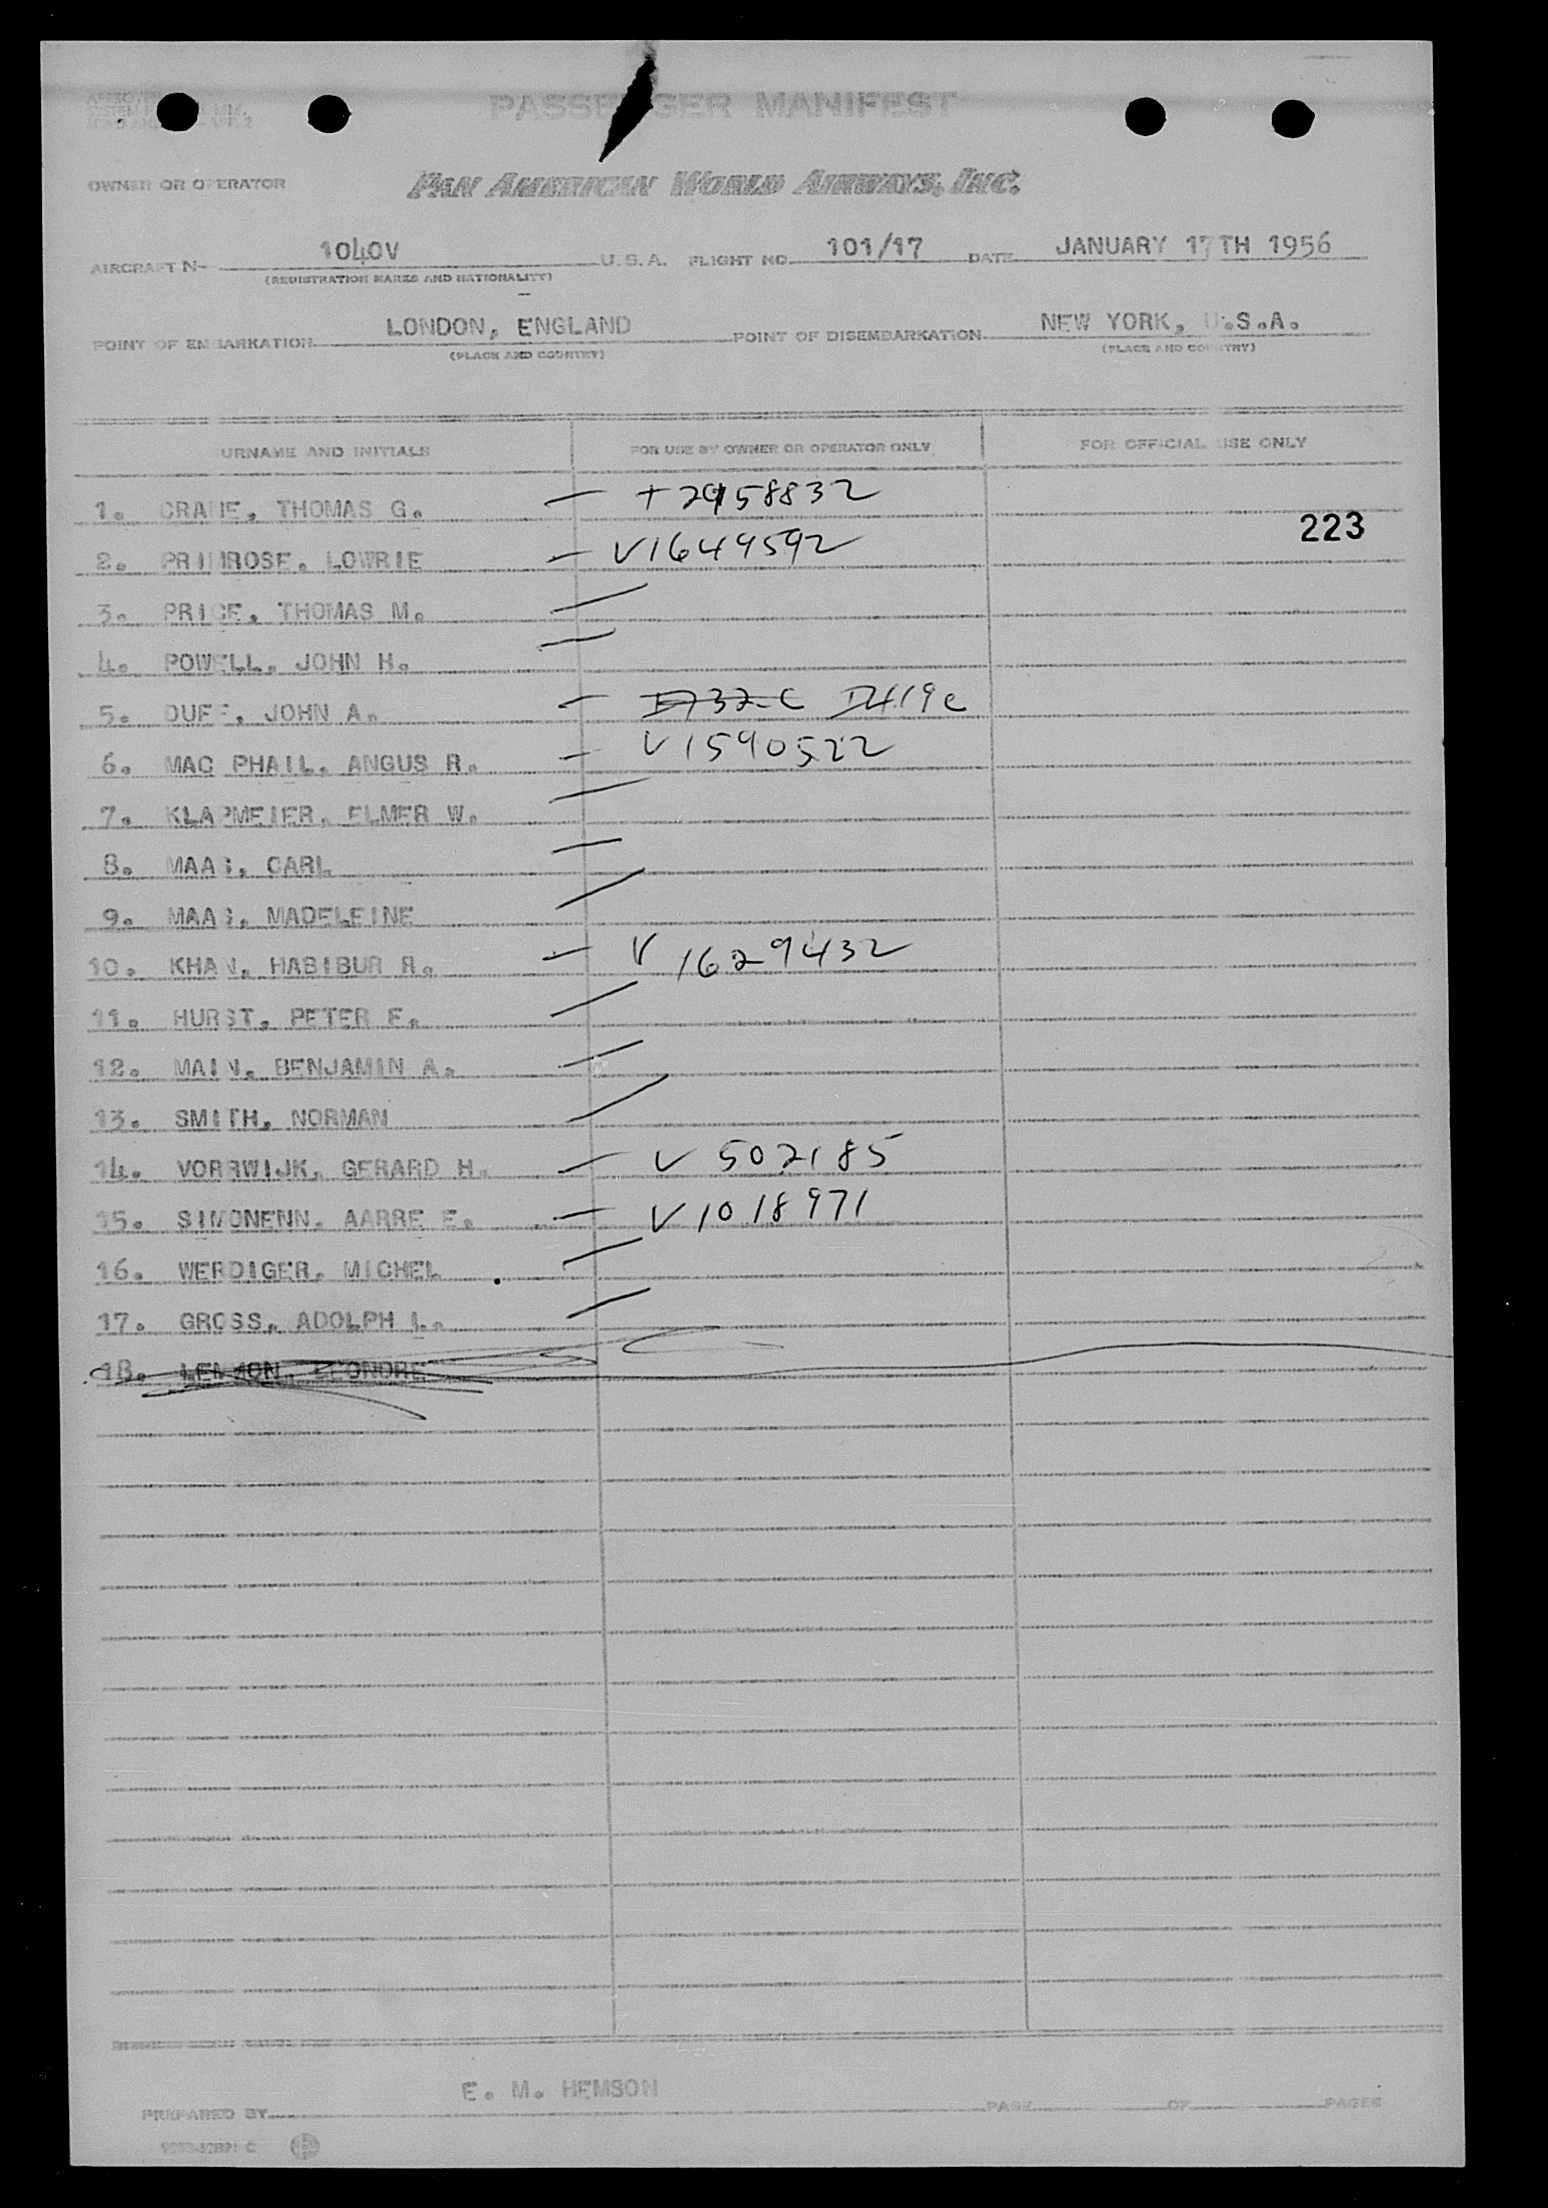 PASSENGER MANIFEST
OWNER OR OPERATOR PAN AMERICAN WORLD AIRWAYS, INC.
AIRCRAFT N- 1040V U.S.A. FLIGHT NO. 101/17 DATE JANUARY 17TH 1956
(REGISTRATION MARKS AND NATIONALITY)
POINT OF EMBARKATION LONDON, ENGLAND POINT OF DISEMBARKATION NEW YORK, U.S.A.
(PLACE AND COUNTRY) (PLACE AND COUNTRY)
URNAME AND INITIALS FOR USE BY OWNER OR OPERATOR ONLY FOR OFFICIAL USE ONLY
1. CRANE, THOMAS G. — 223
2. PRIMROSE, LOWRIE — V1649592
3. PRICE, THOMAS M. —
4. POWELL, JOHN H. —
5. DUFF, JOHN A. — I732C I419c
6. MAC PHAIL, ANGUS R. — V1590522
7. KLAPMEIER, ELMER W. —
8. MAAS, CARL —
9. MAAS, MADELEINE —
10. KHAN, HABIBUR R. — V 1629432
11. HURST, PETER E. —
12. MAIN, BENJAMIN A. —
13. SMITH, NORMAN —
14. VORRWIJK, GERARD H. — V 502185
15. SIMONENN, AARRE E. — V1018971
16. WERDIGER, MICHEL . —
17. GROSS, ADOLPH I. —
18. LEONORE
E. M. HEMSON
PREPARED BY PAGE OF PAGES